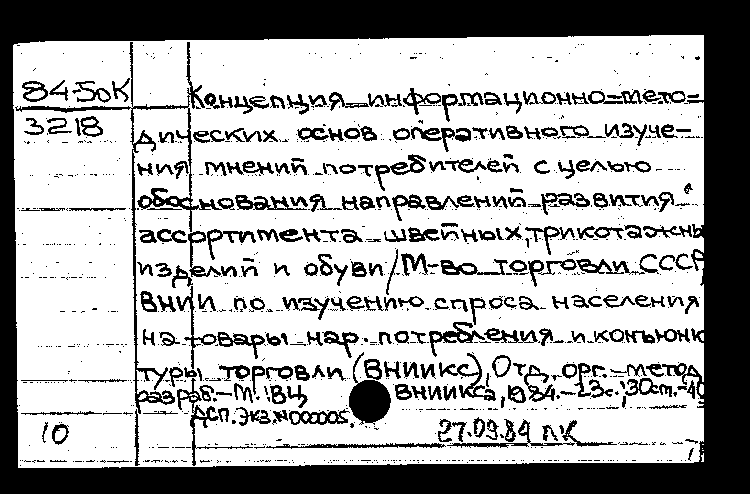 84-5ОК
3218
Концепция информационно-мето-
дических основ оперативного изуче-
ния мнений потребителей с целью
обоснования направлений развития
ассортимента швейных, трикотажны
изделий и обуви / М-во торговли СССР,
ВНИИ по изучению спроса населения
на товары нар. потребления и конъюнк
туры торговли (ВНИИКС), Отд. орг.-метод.
разраб.-М.: ВЦ ВНИИКСа, 1984.-23с.; 30см.-40
ДСП. Экз. N000005.
10
27.09.84 ЛК